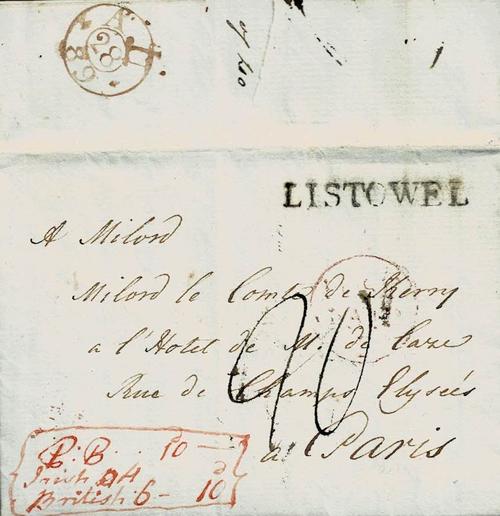 AU 28 89
LISTOWEL
A Milord
Milord le Comte de Kerry
a l'Hotel de M. de Caze
Rue de Champs Elysées
a Paris
P. B. 10 —
Irish 4
British 6 – 10